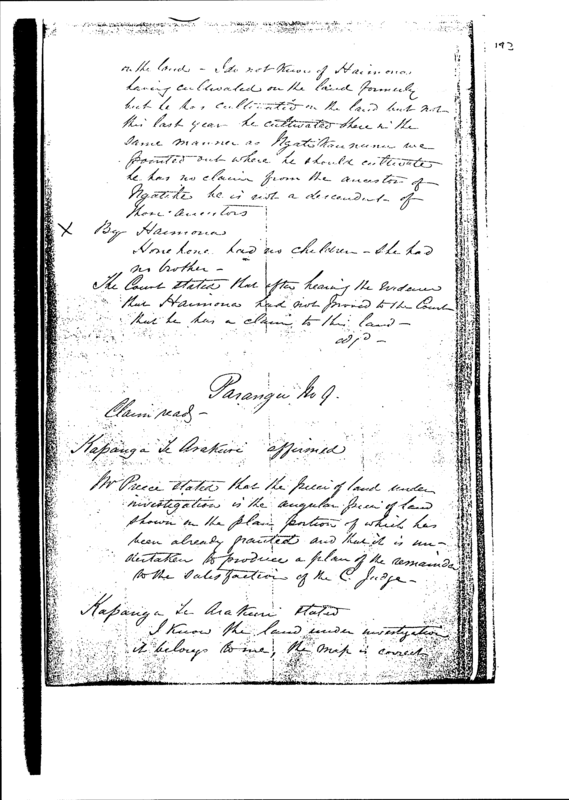 193
on the land – I do not know of Haimona
having cultivated on the land formerly
but he has cultivated on the land but not
this last year he cultivated there in the
same manner as Ngatitaununu we
pointed out where he should cultivate
he has no claim from the ancestors of
he is not a descendant of
those ancestors
X By Haimona
had no children – she had
no brother –
The Court stated that after hearing the evidence
that Haimona had not proved to the Court
that he has a claim to this land –
Parangu No 9.
Claim read –
Kapanga Te Arakuri affirmed
Mr Preece stated that the piece of land under
investigation is the angular piece of land
shown in the plan portion of which has
been already granted and that it is un-
dertaken to produce a plan of the remainder
to the satisfaction of the C. Judge –
Kapanga Te Arakuri stated
I know the land under investigation
it belongs to me, the map is correct